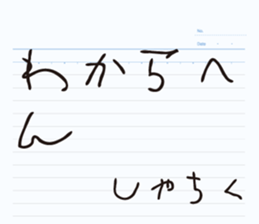 No.
Date
わからへ
ん
しゃちく